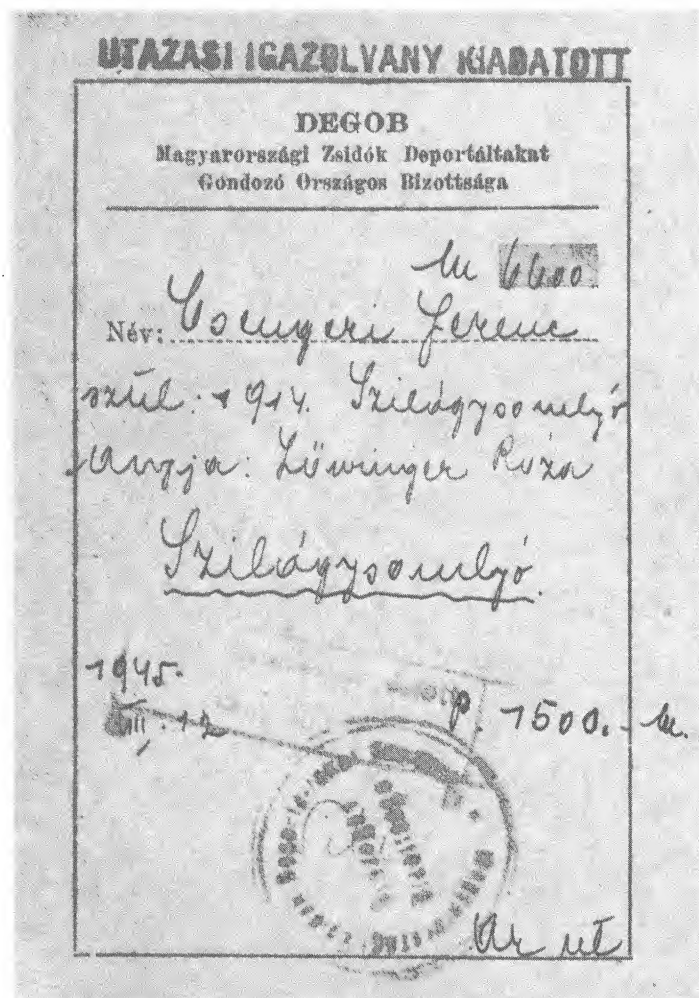 UTAZASI IGAZOLVANY KIADATOTT
DEGOB
Magyarországi Zsidók Deportáltakat
Gondozó Országos Bizottsága
6600
Név: Csengeri Ferenc
szül: 1914. Szilágysomlyó
Anyja: Löwinger Róza
Szilágysomlyó.
1945.
VIII. 12
P. 1500.-